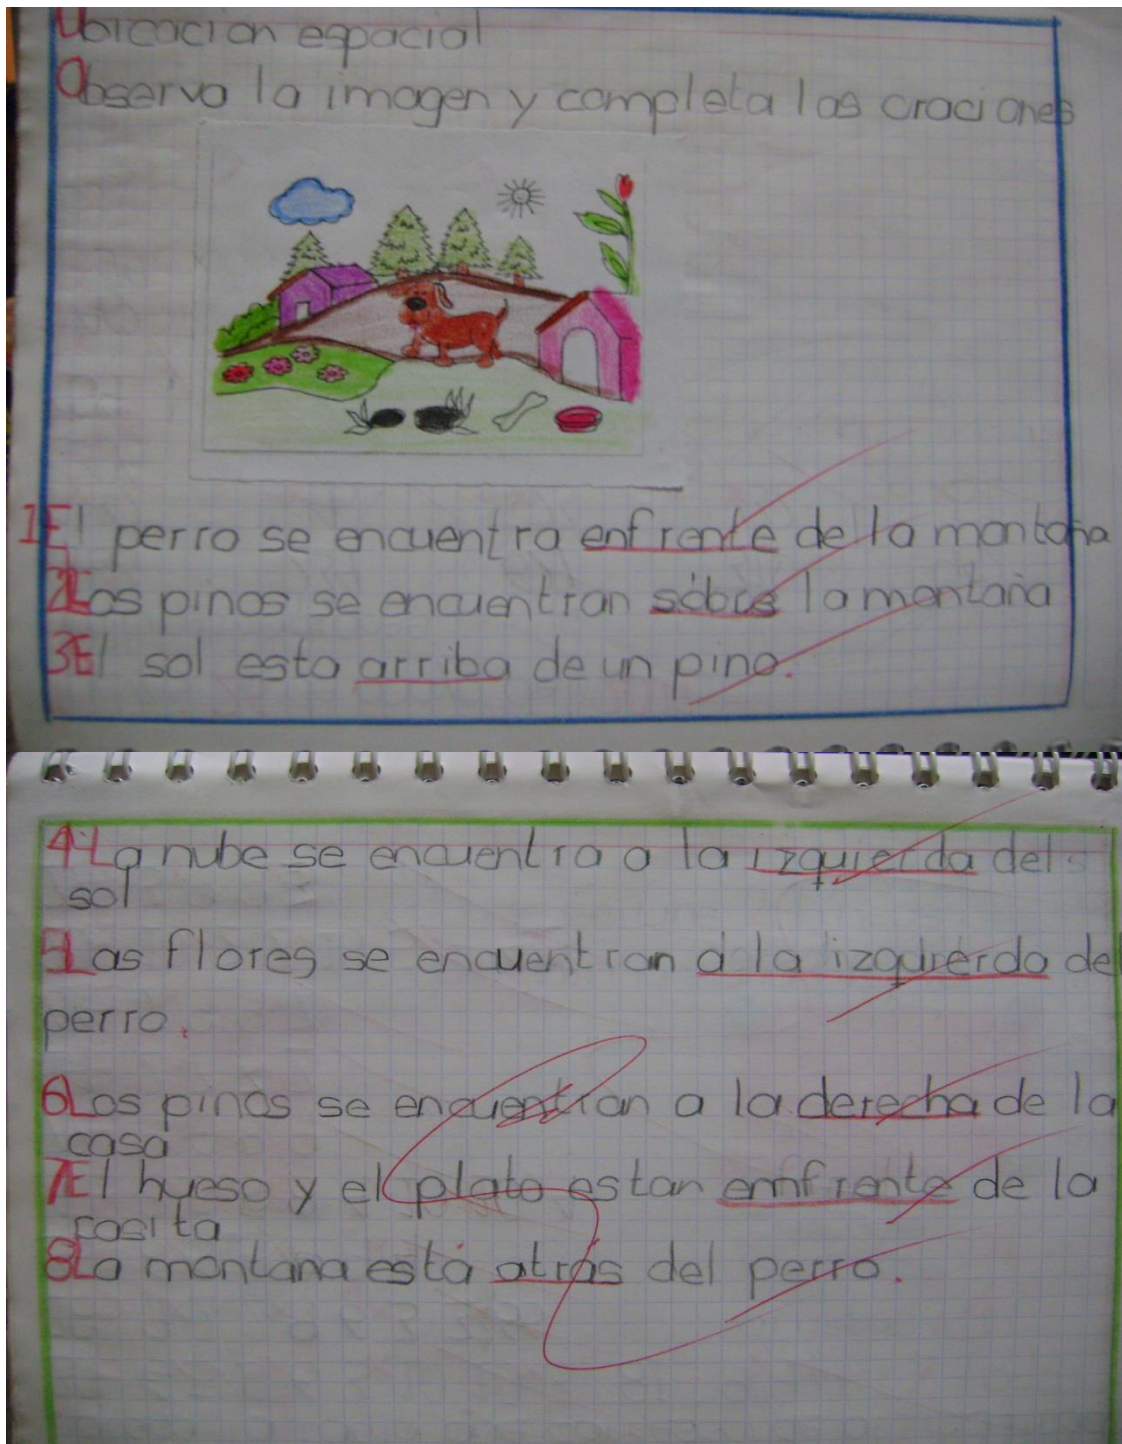 Ubicacion espacial
Observa la imagen y completa las oraciones
1 El perro se encuentra enfrente de la montaña
2 Los pinos se encuentran sobre la montaña
3 El sol esta arriba de un pino.
4 La nube se encuentra a la izquierda del
sol
5 Las flores se encuentran a la izquierda del
perro.
6 Los pinos se encuentran a la derecha de la
casa
7 El hueso y el plato estan emnfrente de la
casita
8 La montana está atrás del perro.